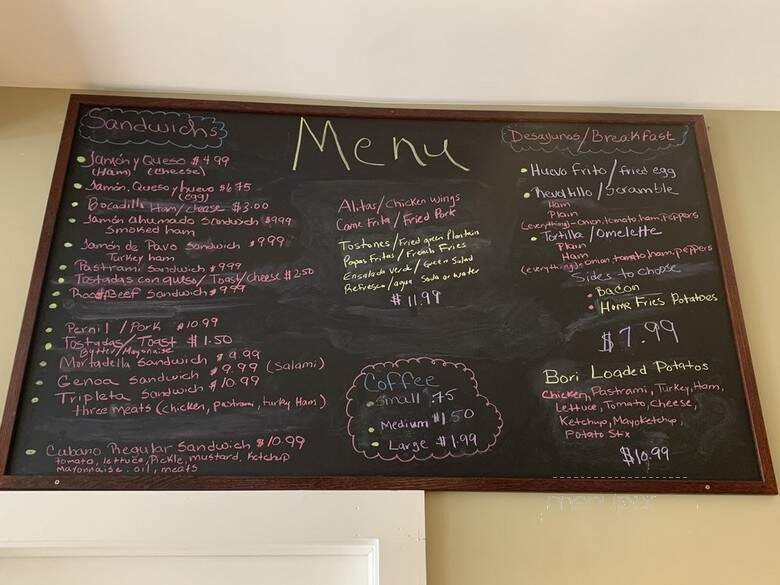 Menu
Sandwichs
Jamón y Queso $4.99
(Ham) (cheese)
Jamón, Queso y huevo $6.75
(egg)
Bocadillo Ham/cheese $3.00
Jamón ahumado Sandwich $999
Smoked ham
Jamón de Pavo Sandwich $999
Turkey ham
Pastrami Sandwich $999
Tostadas con queso/Toast/cheese $2.50
Roast Beef Sandwich $999
Pernil / Pork $10.99
Tostadas/Toast $1.50
Butter/Mayonnaise
Mortadella Sandwich $9.99
Genoa Sandwich $9.99 (Salami)
Tripleta Sandwich $10.99
three meats (chicken, pastrami, turkey Ham)
Cubano Regular Sandwich $10.99
tomato, lettuce, Pickle, mustard, Ketchup
Mayonnaise, oil, meats
Alitas/Chicken Wings
Carne Frita/Fried Pork
Tostones/Fried green Plantain
Papas Fritas/French Fries
Ensalada Verde/Green Salad
Refresco/agua Soda or water
$11.99
Coffee
Small .75
Medium $1.50
Large $1.99
Desayunos/Breakfast
Huevo Frito/fried egg
Revoltillo/Scramble
Ham
Plain
(everything)-onion, tomato, ham, Peppers
Tortilla/Omelette
Plain
Ham
(everything)-onion, tomato, ham, peppers
Sides to choose
Bacon
Home Fries Potatoes
$7.99
Bori Loaded Potatos
Chicken, Pastrami, Turkey, Ham,
Lettuce, Tomato, Cheese,
Ketchup, Mayoketchup,
Potato Stix
$10.99